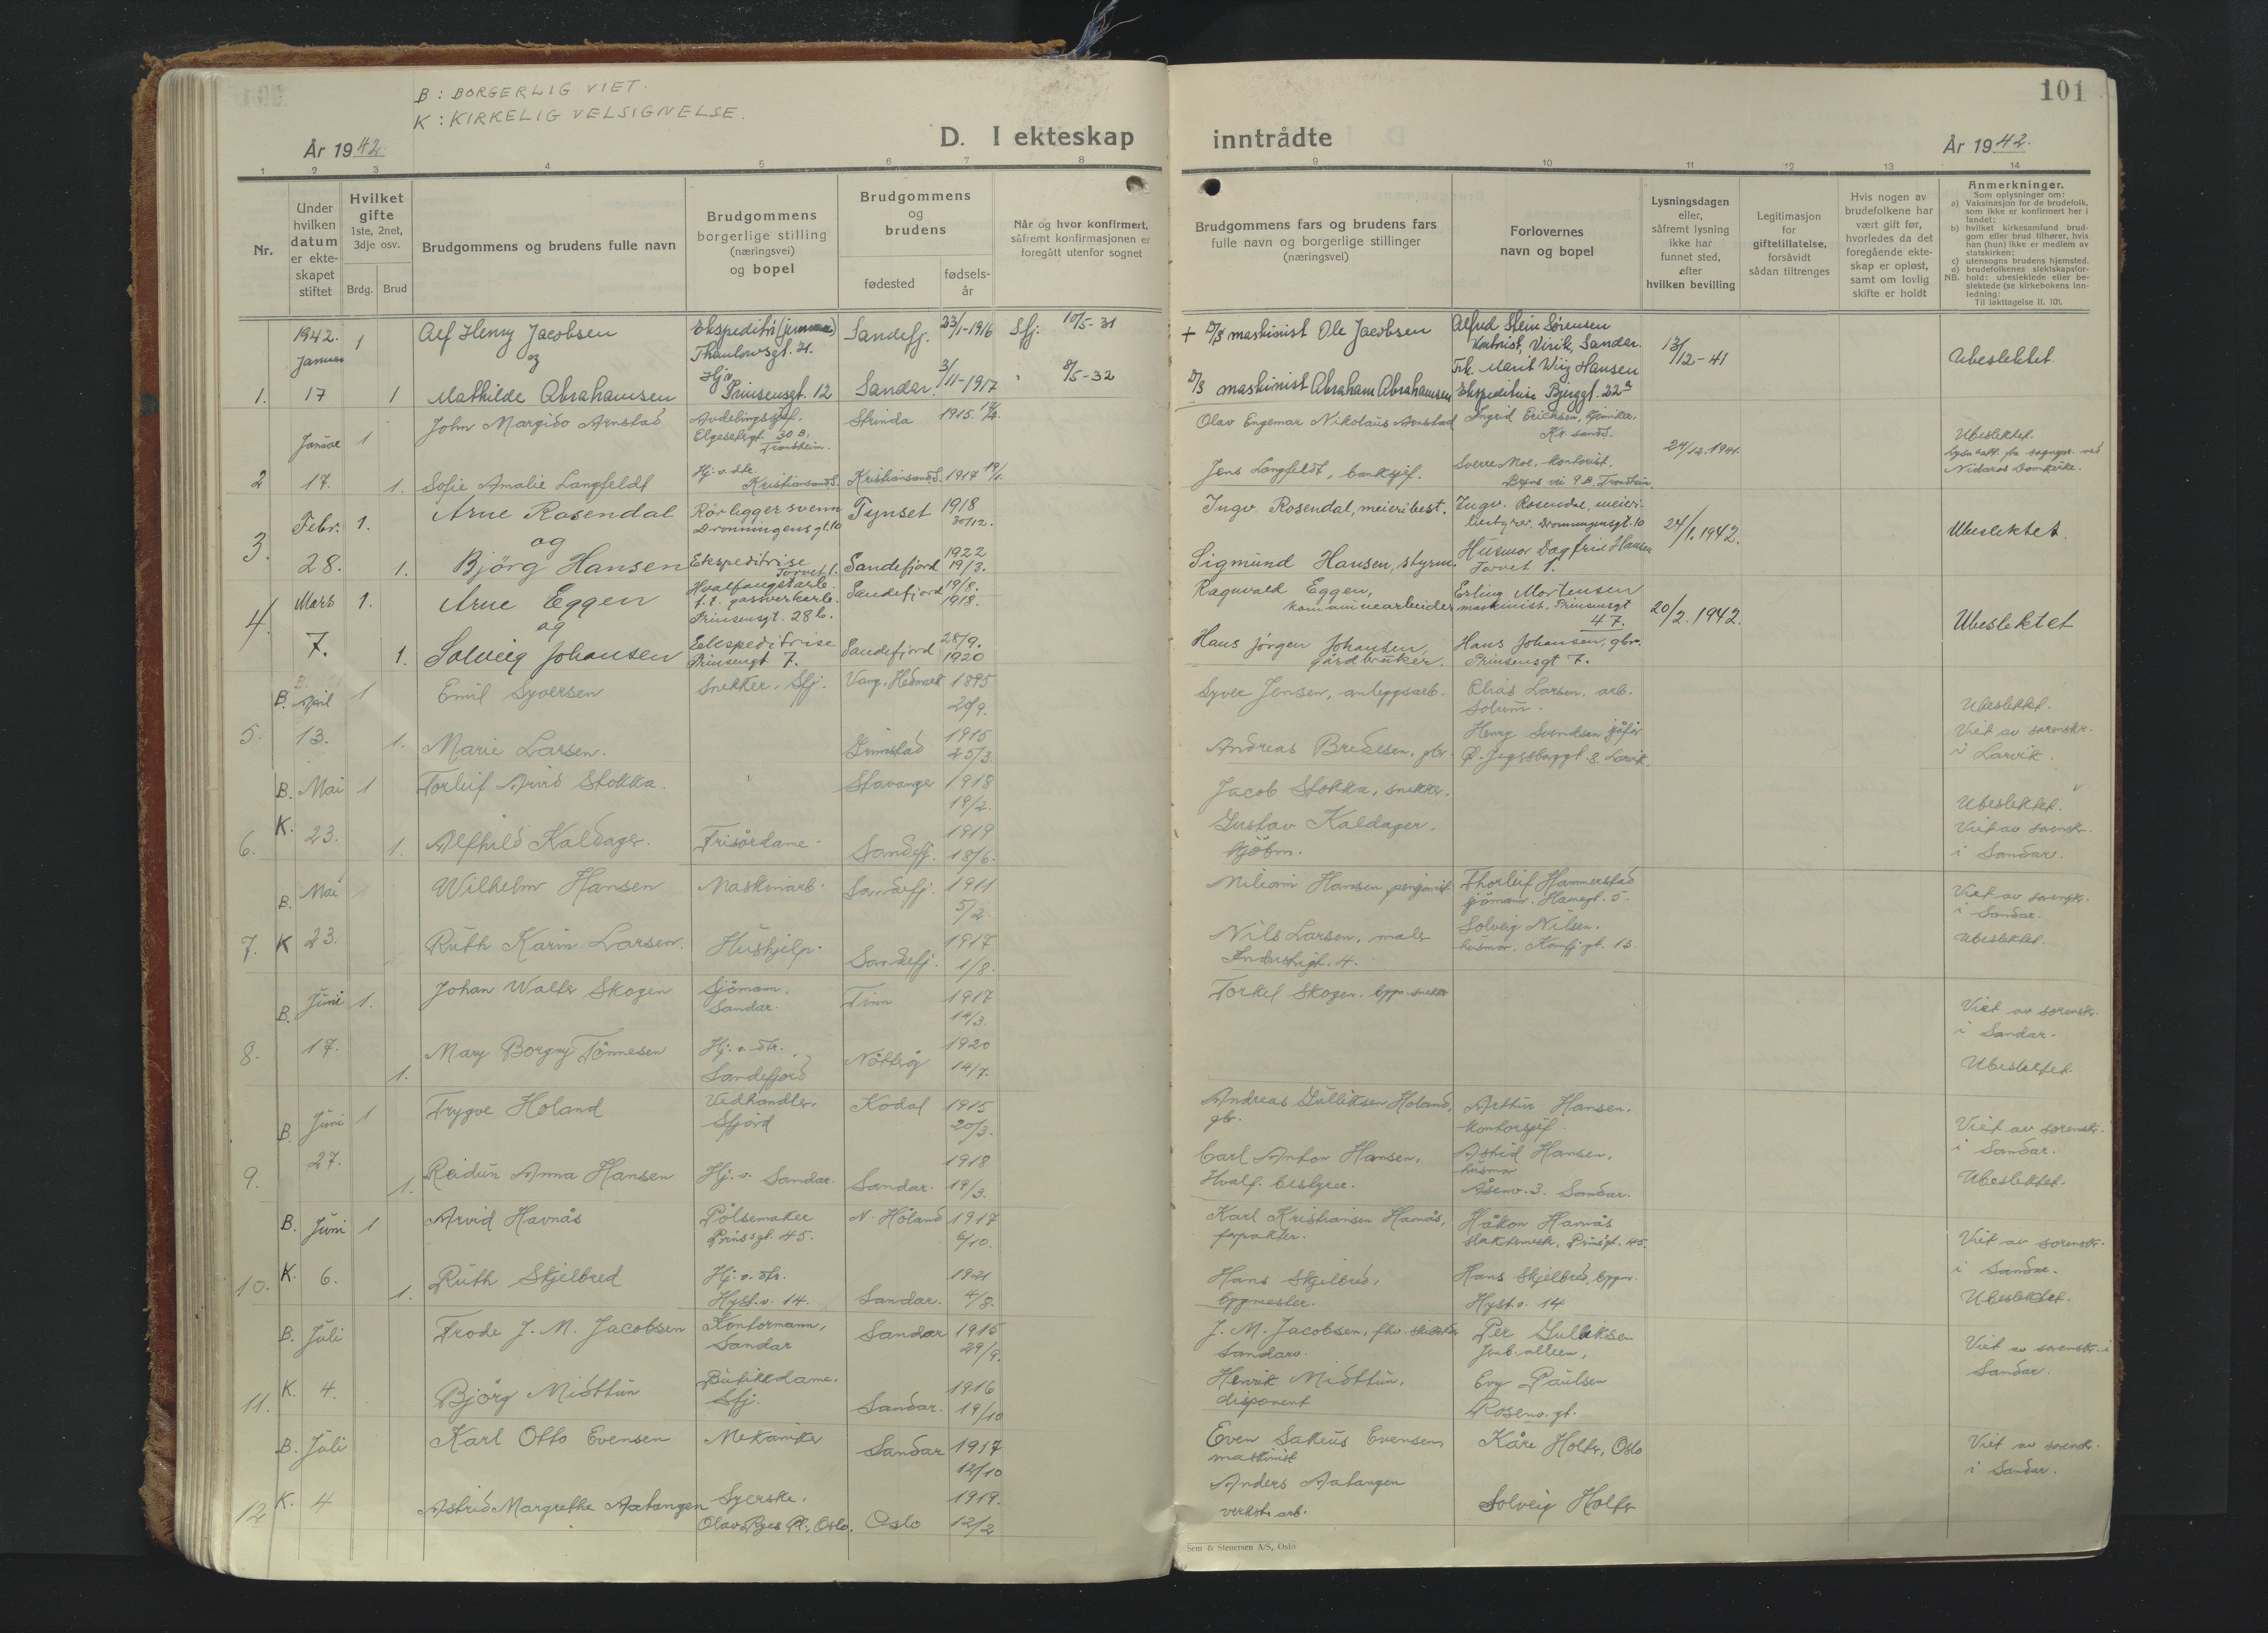 B : BORGERLIG VIET.
K : KIRKELIG VELSIGNELSE.
101
År 1942.
D. I ekteskap inntrådte
År 1942.
1 2 3 4 5 6 7 8 9 10 11 12 13 14
Nr.
Under hvilken datum er ekte-skapet stiftet
Hvilket gifte 1ste, 2net, 3dje osv.
Brdg. Brud
Brudgommens og brudens fulle navn
Brudgommens borgerlige stilling (næringsvei) og bopel
Brudgommens og brudens
fødested
fødsels-år
Når og hvor konfirmert, såfremt konfirmasjonen er foregått utenfor sognet
Brudgommens fars og brudens fars fulle navn og borgerlige stillinger (næringsvei)
Forlovernes navn og bopel
Lysningsdagen eller, såfremt lysning ikke har funnet sted, efter hvilken bevilling
Legitimasjon for giftetillatelse, forsåvidt sådan tiltrenges
Hvis nogen av brudefolkene har vært gift før, hvorledes da det foregående ekte-skap er opløst, samt om lovlig skifte er holdt
Anmerkninger.
Som oplysninger om:
a) Vaksinasjon for de brudefolk, som ikke er konfirmert her i landet;
b) hvilket kirkesamfund brud-gom eller brud tilhører, hvis han (hun) ikke er medlem av statskirken:
c) utensogns brudens hjemsted.
d) brudefolkenes slektskapsfor-
NB. hold: ubeslektede eller be-slektede (se kirkebokens inn-ledning:
Til iakttagelse II. 10).
1942. Januar 1 Alf Henry Jacobsen Thaulowsgt. 21. Sandefj. 23/1-1916 Sfj. 10/5-31 + D/S maskinist Ole Jacobsen Alfred Stein Sørensen Virik, Sandar. 13/12-41 Ubeslektet.
og
1. 17 1 Mathilde Abrahamsen Hj. v. Prinsensgt. 12 Sandar. 3/11-1917 8/5-32 D/S maskinist Abraham Abrahamsen Frk. Marit Wiig Hansen Ekspeditrise Bjerggt. 22a
Januar 1 John Margido Arnstad Avdelingssjef. Elgesetergt. 30 B. Trondheim. Strinda 1915. Olav Engemar Nikolaus Arnstad Ingrid Erichsen, Kr. sandS. 24/12.1941. Ubeslektet.
Nidaros Domkirke.
2 17. 1. Sofie Amalie Langfeldt Hj. v. dtr. KristiansandS. KristiansandS. 1917 Jens Langfeldt, banksjef. Sverre Moe, kontorist, Trondheim.
Febr. 1. Arne Rosendal Rørleggersvenn Dronningensgt. 10 Tynset 1918 30/12. Ingv. Rosendal, meieribest. Ingv. Rosendal, meieri-bestyrer. Dronningensgt. 10 24/1. 1942. Ubeslektet.
og
3. 28. 1. Bjørg Hansen Ekspeditrise Torvet 1. Sandefjord 1922 19/3. Sigmund Hansen, styrm. Husmor Dagfrid Hansen Torvet 1.
Mars 1. Arne Eggen Hvalfangstarb. f.t. gassverkarb. Prinsensgt. 28b. Sandefjord 19/8. 1918. Ragnvald Eggen, kommunearbeider Erling Mortensen maskinist, Prinsensgt 47. 20/2. 1942. Ubeslektet
og
4. 7. 1. Solveig Johansen Ekspeditrise Prinsensgt 7. Sandefjord 28/9. 1920 Hans Jørgen Johansen, gårdbruker. Hans Johansen, gbr. Prinsensgt 7.
B. April 1 Emil Syversen Snekker. Sfj. Vang, Hedmark 1895 29/9. Syver Jensen, anleggsarb. Elias Larsen, arb. Solum. Ubeslektet.
5. 13. 1. Marie Larsen. Grimstad 1915 25/3. Andreas Bredesen, gbr. Henry Svendsen sjåfør Larvik. Viet av sorenskr. i Larvik.
B. Mai 1 Torleif Arvid Stokka. Stavanger 1918 19/2. Jacob Stokka, snekker. Ubeslektet.
6. K. 23. 1. Alfhild Kaldager. Frisørdame. Sandefj. 1919 18/6. Gustav Kaldager. kjøbm. Viet av sorenskr. i Sandar.
B. Mai Wilhelm Hansen Maskinarb. Sandefj. 1911 5/2 Hansen, pensjonist Thorleif Hammerstad sjømann. Viet av sorenskr. i Sandar.
7. K 23. Ruth Karin Larsen. Hushjelp. Sandefj. 1917 1/8. Nils Larsen, maler Industrigt. 4. Solveig Nilsen, husmor. Kamfj. gt. 13. Ubeslektet.
B. Juni 1. Johan Walter Skogen Sjømann. Sandar. Tinn 1917 14/3. Torkel Skogen. bygn. snekker Viet av sorenskr. i Sandar.
8. 17. 1. Mary Borgny Tønnesen Hj. v. dtr. Sandefjord Nøtterøy 1920 14/7. Ubeslektet.
B. Juni 1 Trygve Holand Vedhandler, Sfjord Kodal 1915 20/3. Andreas Gulliksen Holand, gbr. Arthur Hansen. kontorsjef. Viet av sorenskr. i Sandar.
9. 27. 1. Reidun Anna Hansen Hj. v. Sandar. Sandar. 1918 19/3. Carl Anton Hansen, Hvalf. bestyrer. Astrid Hansen, husmor Åsenv. 3. Sandar. Ubeslektet.
B. Juni 1 Arvid Havnås Pølsemaker Prinsgt. 45. N. Høland 1917 6/10. Karl Kristiansen Havnås, forpakter. Håkon Havnås slaktermester, Prinsgt. 45. Viet av sorenskr. i Sandar.
10. K. 6. 1. Ruth Skjelbred Hj. v. dtr. Hyst. v. 14. Sandar. 1921 4/8. Hans Skjelbred, bygmester. Hans Skjelbred, bygm. Hyst. v. 14 Ubeslektet.
B. Juli Frode J. M. Jacobsen Kontormann, Sandar Sandar 1915 29/9. J. M. Jacobsen, Sandar. Per Gulliksen Jernb. alleen, Viet av sorenskr. i Sandar.
11. K. 4. Bjørg Midttun Butikkdame. Sfj. Sandar. 1916 19/10 Henrik Midttun, disponent Evy Paulsen Rosenv. gt.
B. Juli Karl Otto Evensen Mekaniker Sandar 1917 12/10 Even Sakeus Evensen, maskinist Kåre Holter, Oslo Viet av sorenskr. i Sandar.
12 K. 4 Astrid Margrethe Aatangen Syerske. Olav Ryes Pl. Oslo. Oslo 1919. 12/2 Anders Aatangen verkst. arb. Solveig Holter
Sem & Stenersen A/S, Oslo